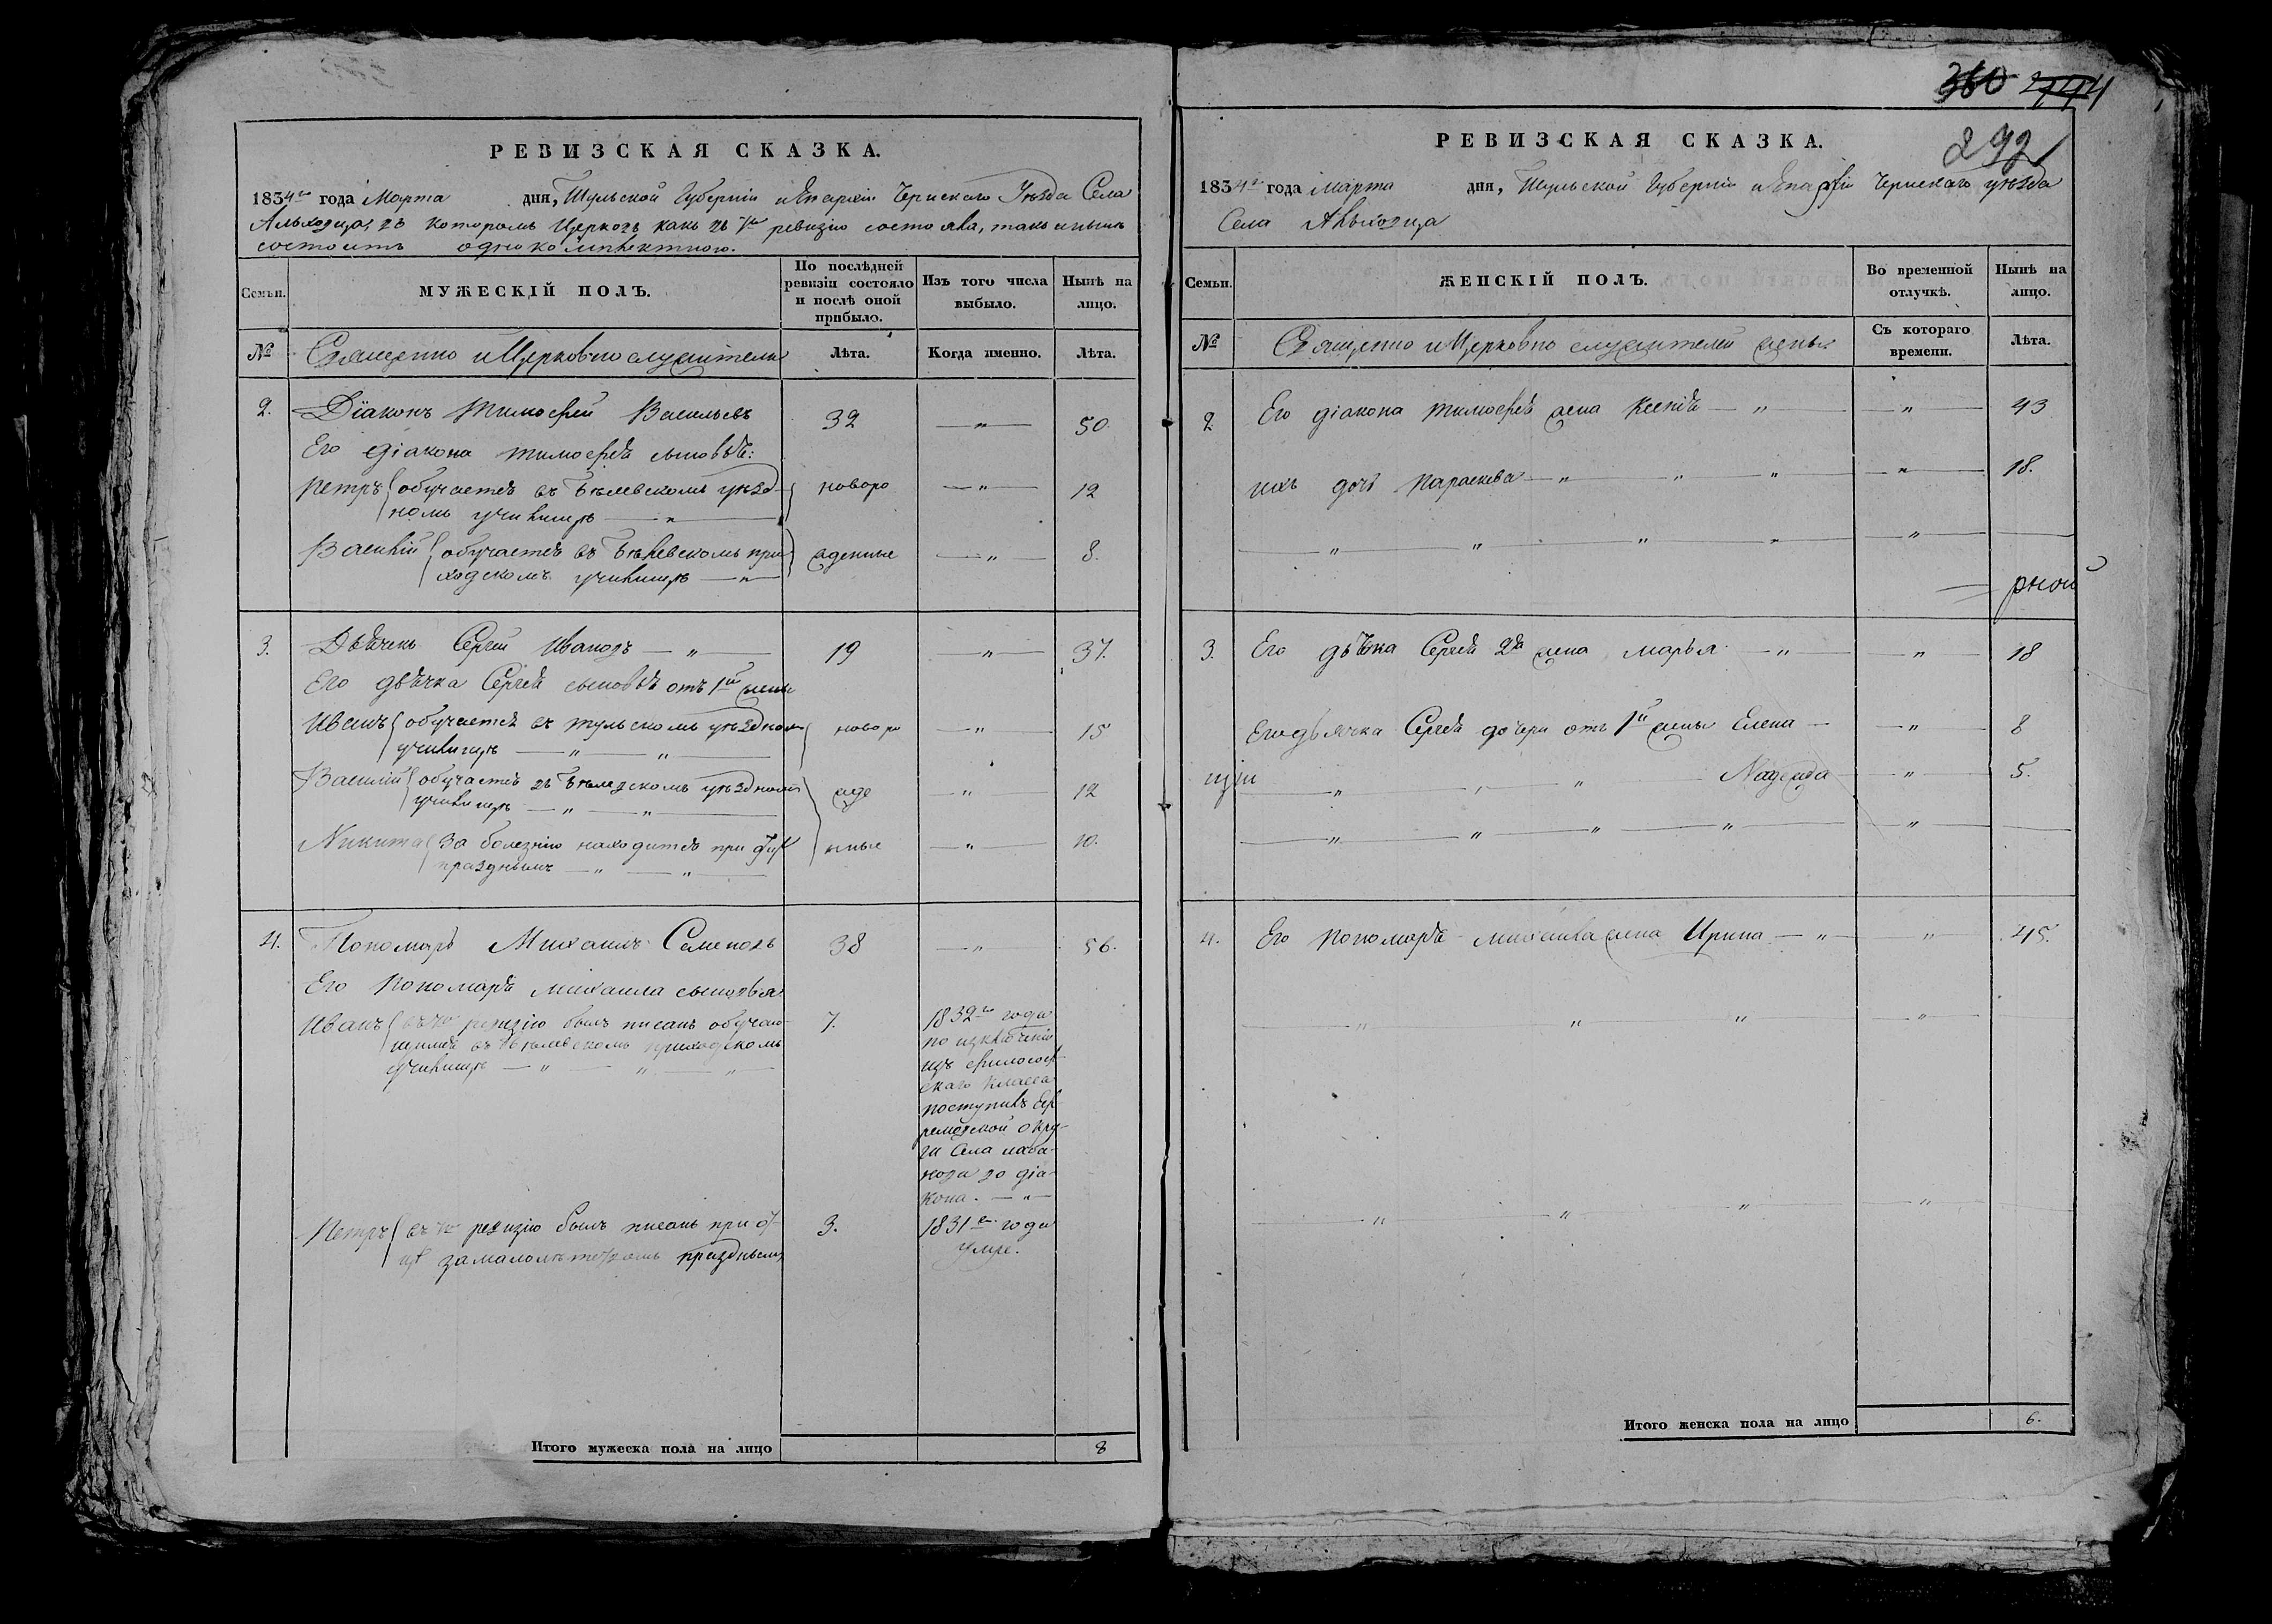 РЕВИЗСКАЯ СКАЗКА.
1834го года Марта дня, Тульской Губернiи и Епархiи Чернскаго Уѣзда Села
въ которомъ Церковь какъ въ 7ю ревизiю состояла, такъ и нынѣ
состоитъ однокомплектною.
Семьи.
МУЖЕСКIЙ ПОЛЪ.
По послѣдней ревизiи состояло и послѣ оной прибыло.
Изъ того числа выбыло.
Нынѣ на лицо.
№
Священно и Церковно служители
Лѣта.
Когда именно.
Лѣта.
2. Дiаконъ Тимофей Васильевъ 32 — „ — 50.
Его дiакона Тимофея сыновья:
Петръ { обучается въ Бѣлевскомъ уѣзд- новоро — „ — 12
номъ училищѣ — „ —
Василiй { обучается въ Бѣлевскомъ при- жденные — „ — 8.
ходскомъ училищѣ — „ —
3. Дьячекъ Сергей Ивановъ — „ — 19 — „ — 37.
Его дьячка Сергея сыновья отъ 1й жены
Иванъ { обучается въ Тульскомъ уѣздномъ новоро — „ — 15
училищѣ — „ — „ —
Василiй { обучается въ Бѣлевскомъ уѣздномъ жде — „ — 12
училищѣ — „ — „ —
Никита { За болезнiю находится при отцѣ нные — „ — 10.
празднымъ — „ — „ —
4. Пономарь Михаилъ Семеновъ 38 — „ — 56.
Его Пономаря Михаила сыновья
Иванъ { въ 7ю ревизiю былъ писанъ обучаю- 7. 1832го года
щимся въ Бѣлевскомъ приходскомъ по изключенiи
училищѣ — „ — „ — „ — изъ философ-
скаго класса
поступилъ Еф-
ремовской окру-
ги Села
во дiа-
кона. — „ —
Петръ { въ 7ю ревизiю былъ писанъ при от- 3. 1831го года
цѣ за малолѣтствомъ празднымъ умре.
Итого мужеска пола на лицо 8
360
292
РЕВИЗСКАЯ СКАЗКА.
1834го года Марта дня, Тульской Губернiи и Епархiи Чернскаго уѣзда
Села
Семьи.
ЖЕНСКIЙ ПОЛЪ.
Во временной отлучкѣ.
Нынѣ на лицо.
№
Священно и Церковно служителей жены
Съ котораго времени.
Лѣта.
2. Его дiакона Тимофея жена Ксенiя — „ — „ — 43
ихъ дочь Параскева — „ „ „ — „ — 18.
— „ — „ — „ — „ — „ —
3. Его дьячка Сергея 2я жена Марья — „ — „ — 18
Его дьячка Сергея дочери отъ 1й жены Елена — — „ — 8
— „ — „ — „ — Надежда — „ — 5.
— „ — „ — „ — „ — „ —
4. Его Пономаря Михаила жена Ирина — „ — „ 45.
— „ — „ — „ — „ —
— „ — „ — „ — „ —
Итого женска пола на лицо 6.